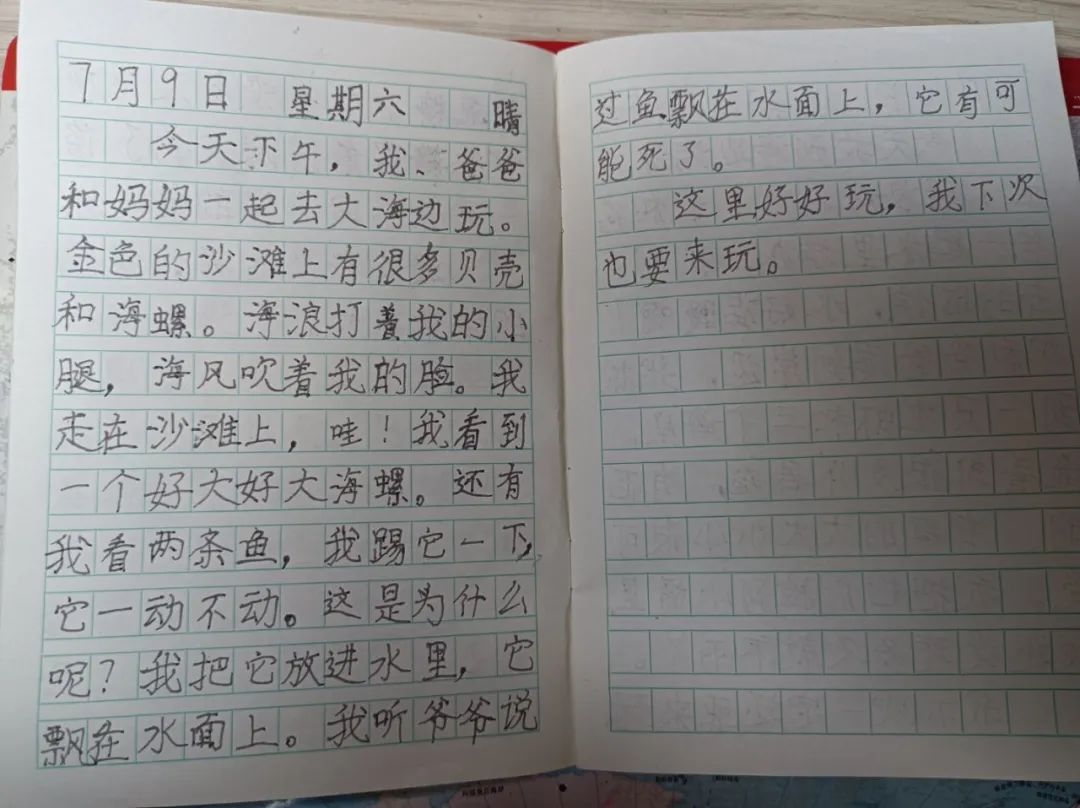 7月9日 星期六 晴
今天下午，我、爸爸
和妈妈一起去大海边玩。
金色的沙滩上有很多贝壳
和海螺。海浪打着我的小
腿，海风吹着我的脸。我
走在沙滩上，哇！我看到
一个好大好大海螺。还有
我看两条鱼，我踢它一下，
它一动不动。这是为什么
呢？我把它放进水里，它
飘在水面上。我听爷爷说
过鱼飘在水面上，它有可
能死了。
这里好好玩，我下次
也要来玩。